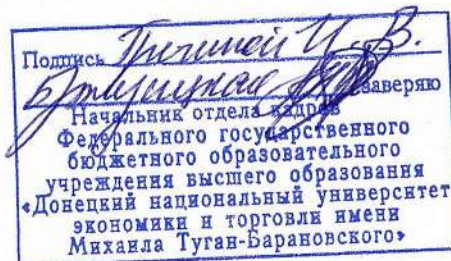 Подпись Гречиной И. В.
заверяю
Начальник отдела кадров
Федерального государственного
бюджетного образовательного
учреждения высшего образования
«Донецкий национальный университет
экономики и торговли имени
Михаила Туган-Барановского»